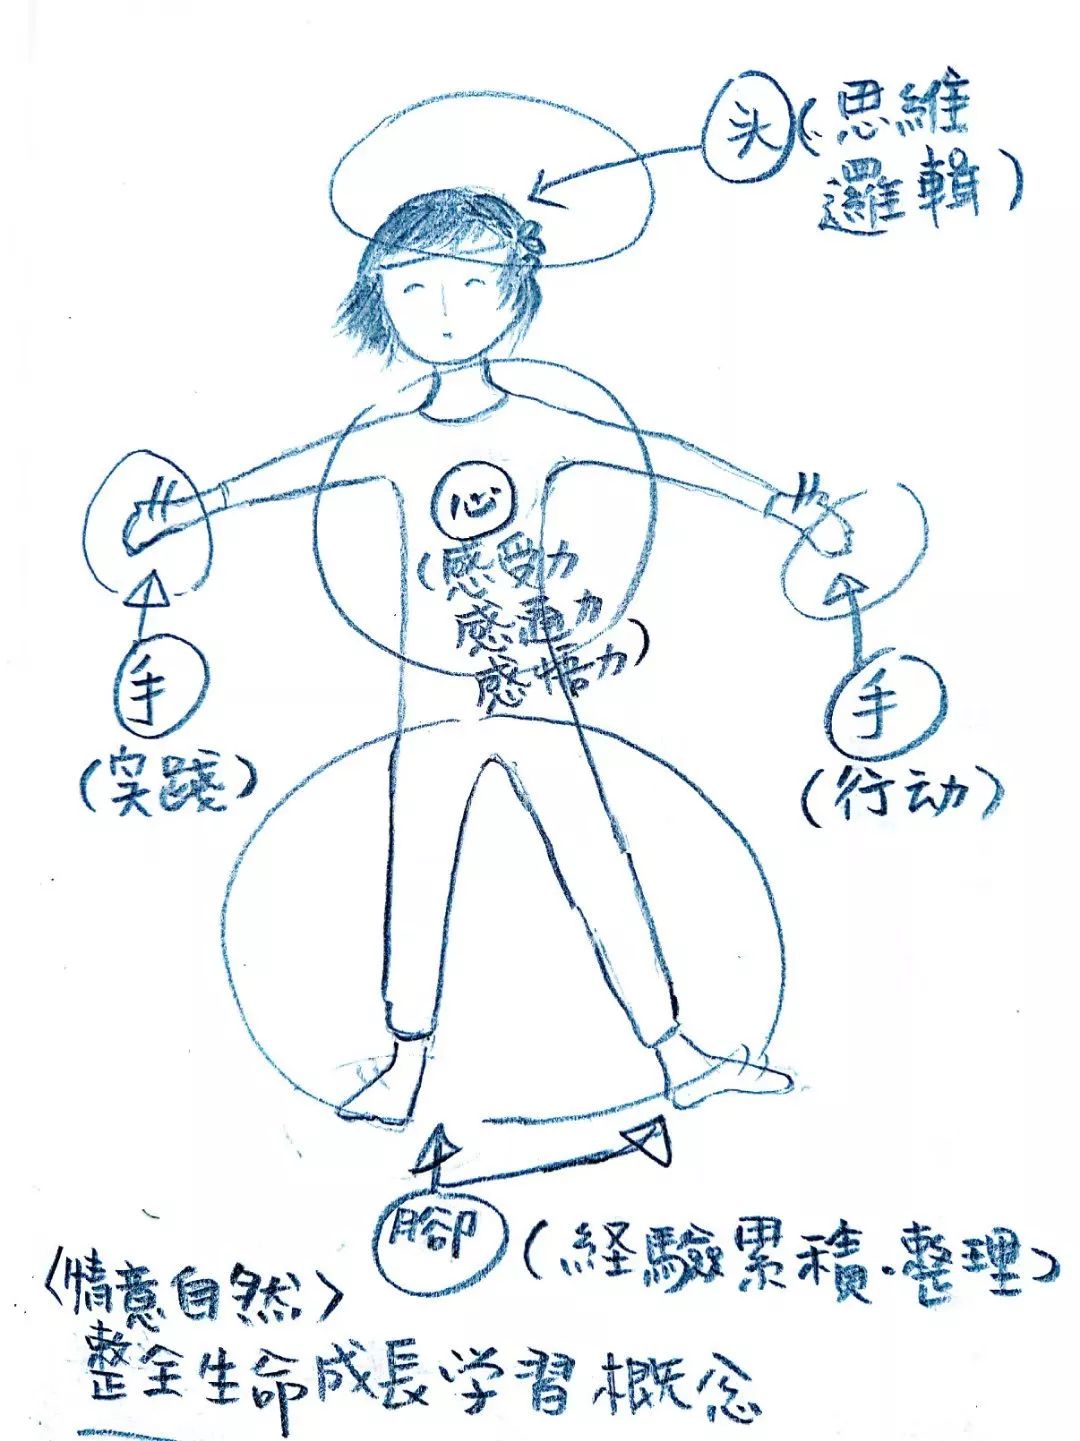 头(思維
邏輯)
心
(感受力
感通力
感悟力)
手
(实踐)
手
(行动)
腳(経驗累積·整理)
〈情意自然〉
整全生命成長学習概念